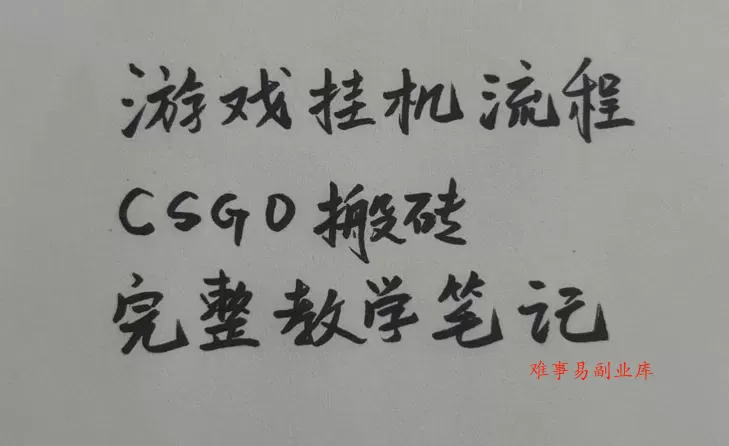 游戏挂机流程
CSGO搬砖
完整教学笔记
难事易副业库